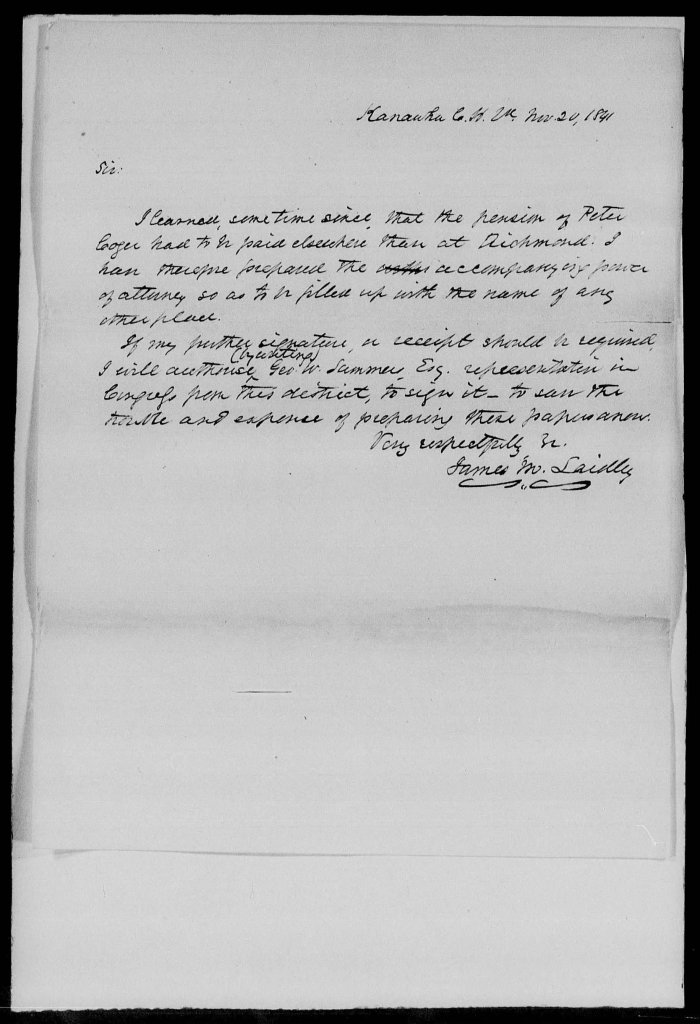 Kanawha C. H. Va. Nov 20, 1841
Sir:
I learned, some time since, that the pension of Peter
Coger had to be paid elsewhere than at Richmond. I
have therefore prepared the accompanying power
of attorney so as to be filled up with the name of any
other place.
If my further signature, or receipt should be required,
(by writing)
I will authorise Geo. W. Summers, Esq. representative in
Congress from this district, to sign it — to save the
trouble and expense of preparing these papers anew.
Very respectfully &c.
James M. Laidley